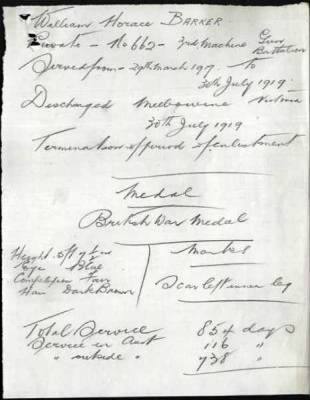 William Horace BARKER
Private - No 662 - 3rd Machine Gun Battalion
Served from - 29th March 1917 to
30th July 1919
Discharged Melbourne Victoria
30th July 1919
Termination of period of enlistment
Medal
British War Medal
Height 5ft 9
Eye Blue
Complexion Fair
Hair Dark Brown
Marks
Scar left inner leg
Total Service 854 days
Service in Aust 116 "
" outside " 738 "